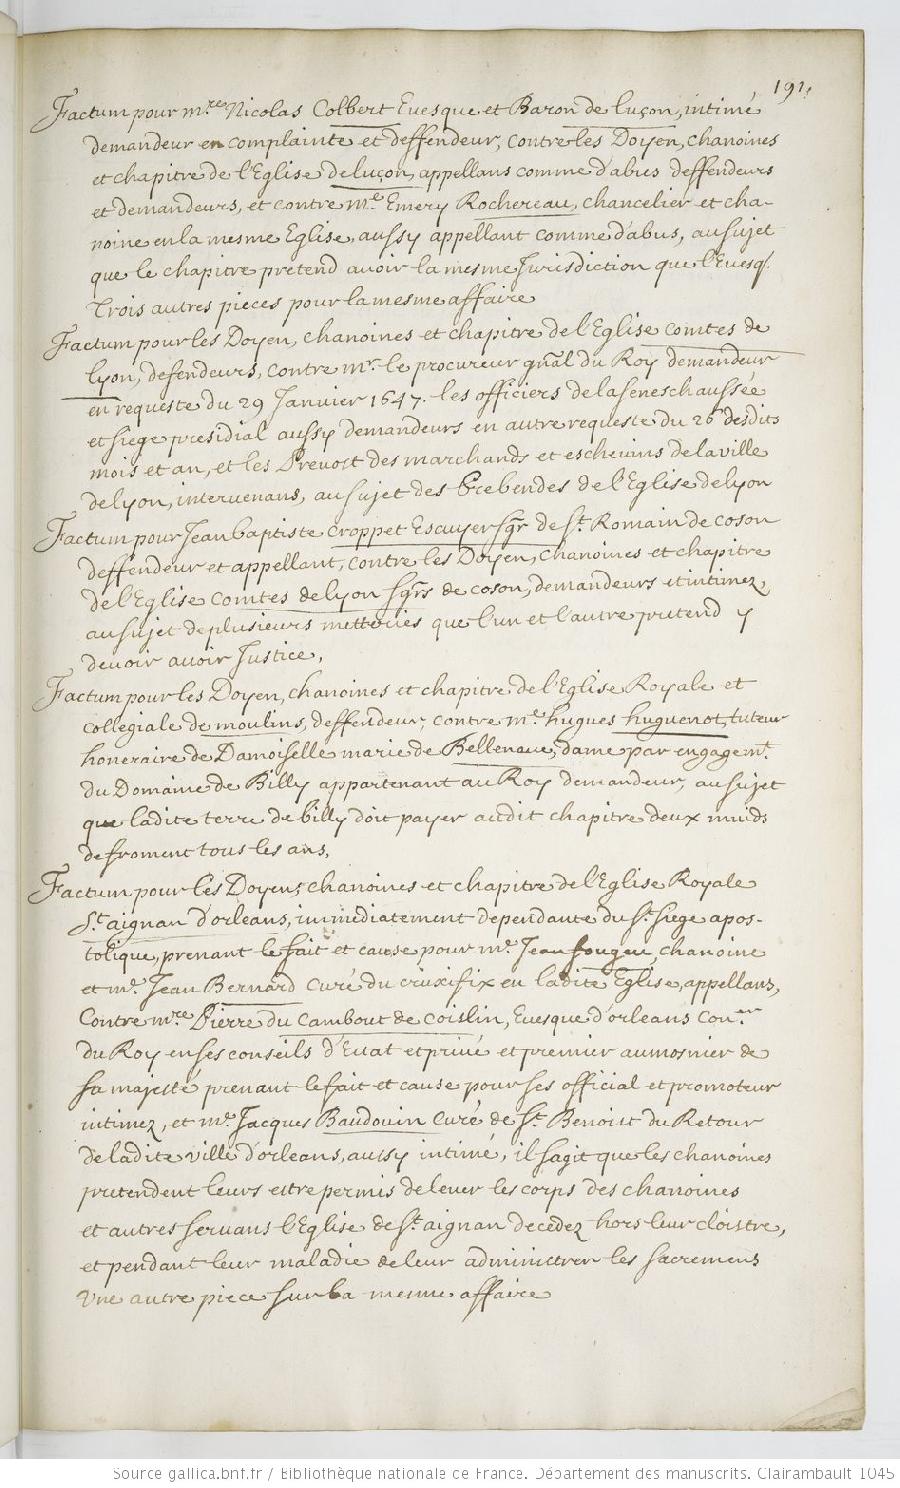 191.
Factum pour mre Nicolas Colbert Evesque et Baron de luçon, intimé
demandeur en complainte et deffendeur, contre les Doyen, chanoines
et chapitre de l'Eglise de luçon, appellans comme d'abus deffendeurs
et demandeurs, et contre me Emery Rochereau, chancelier et cha-
noine en la mesme Eglise, aussy appellant comme d'abus, au sujet
que le chapitre pretend avoir la mesme Jurisdiction que l'Evesq.
Trois autres pieces pour la mesme affaire
Factum pour les Doyen, chanoines et chapitre de l'Eglise comtes de
lyon, defendeurs, contre mr. le procureur gñal du Roy demandeur
en requeste du 29 Janvier 1647. les officiers de la seneschaussée
et siege presidial aussy demandeurs en autre requeste du 26 desdits
mois et an, et les Prevost des marchands et eschevins de la ville
de lyon, intervenans, au sujet des Prebendes de l'Eglise de lyon
Factum pour Jean baptiste Croppet Escuyer sgr de St. Romain de coson
deffendeur et appellant, contre les Doyen, chanoines et chapitre
de l'Eglise comtes de lyon sgrs de coson, demandeurs et intimez
au sujet de plusieurs metteries que l'un et l'autre pretend y
devoir avoir Justice,
Factum pour les Doyen, chanoines et chapitre de l'Eglise Royale et
collegiale de moulins, deffendeur, contre me. hugues huguenot, tuteur
honoraire de Damoiselle marie de Bellenave, dame par engagemt.
du Domaine de Billy appartenant au Roy demandeur, au sujet
que ladite terre de billy doit payer audit chapitre deux muids
de froment tous les ans,
Factum pour les Doyen, chanoines et chapitre de l'Eglise Royale
St. aignan d'orleans, immediatement dependante du St. siege apos-
tolique, prenant le fait et cause pour me. Jean fougeu, chanoine
et me. Jean Bernard curé du cruxifix en ladite Eglise, appellans,
Contre mre Pierre du Cambout de Coislin, Evesque d'orleans Coner
du Roy en ses conseils d'Estat et privé et premier aumosnier de
sa majesté prenant le fait et cause pour ses official et promoteur
intimez, et me Jacques Baudouin curé de St. Benoist du Retour
de ladite ville d'orleans, aussy intimé, il s'agit que les chanoines
pretendent leurs estre permis de lever les corps des chanoines
et autres servans l'Eglise de St. aignan decedez hors leur cloistre,
et pendant leur maladie de leur administrer les sacremens
Une autre piece sur la mesme affaire
Source gallica.bnf.fr / Bibliothèque nationale de France. Département des manuscrits. Clairambault 1045